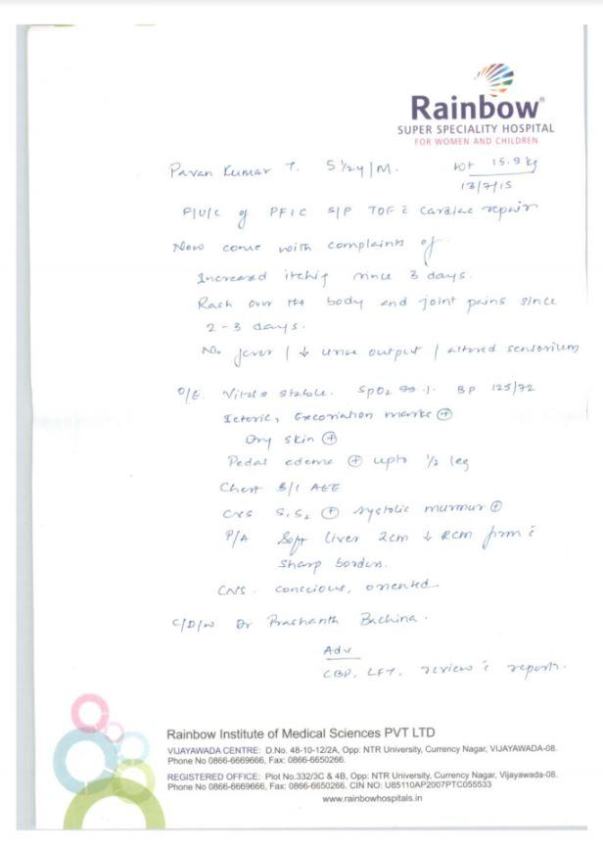 Rainbow®
SUPER SPECIALITY HOSPITAL
FOR WOMEN AND CHILDREN
Pavan Kumar T. 5 1/2y/M. wt 15.9 kg
13/7/15
PFIC S/P TOF c̄ Cardiac repair
Now come with complaints of
Increased itchig since 3 days.
Rash over the body and joint pains since
2-3 days.
No fever / ↓ urine output / altered sensorium
O/E. Vitals stable. SpO2 99% BP 125/72
Icteric, Excoriation marks ⊕
Dry skin ⊕
Pedal edema ⊕ upto 1/2 leg
Chest B/L AEE
CVS S1S2 ⊕ systolic murmur ⊕
P/A Soft liver 2cm ↓ RCM firm c̄
sharp borders.
CNS. conscious, oriented.
C/D/w Dr Prashanth Bachina.
Adv
CBP, LFT, review c̄ reports.
Rainbow Institute of Medical Sciences PVT LTD
VIJAYAWADA CENTRE: D.No. 48-10-12/2A, Opp: NTR University, Currency Nagar, VIJAYAWADA-08.
Phone No 0866-6669666, Fax: 0866-6650266.
REGISTERED OFFICE: Plot No.332/3C & 4B, Opp: NTR University, Currency Nagar, Vijayawada-08.
Phone No 0866-6669666, Fax: 0866-6650266. CIN NO: U85110AP2007PTC055533
www.rainbowhospitals.in